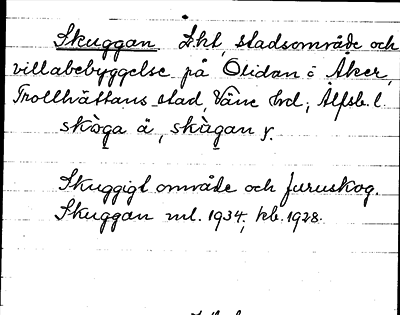 Skuggan Lht, stadsområde och
villabebyggelse på Olidan o Åker,
Trollhättans stad, Väne hrd, Älfsb. l.
skòga ä, skùgan y.
Skuggigt område och furuskog.
Skuggan ml. 1934, kb. 1928.